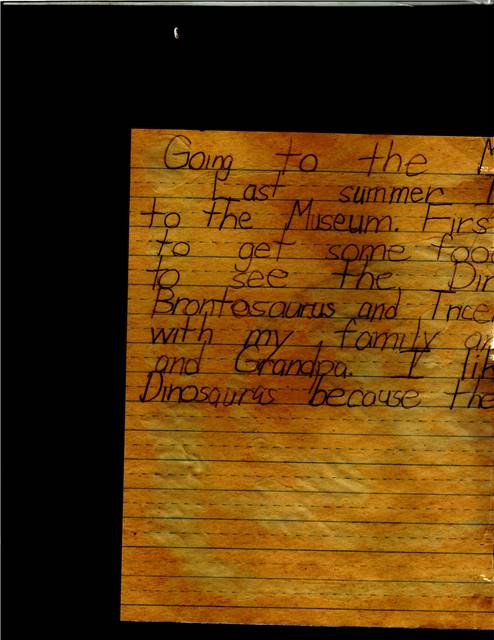 Going to the M
Last summer I
to the Museum. Firs
to get some foo
to see the Din
Brontosaurus and Tricer
with my family an
and Grandpa. I lik
Dinosaurus because the